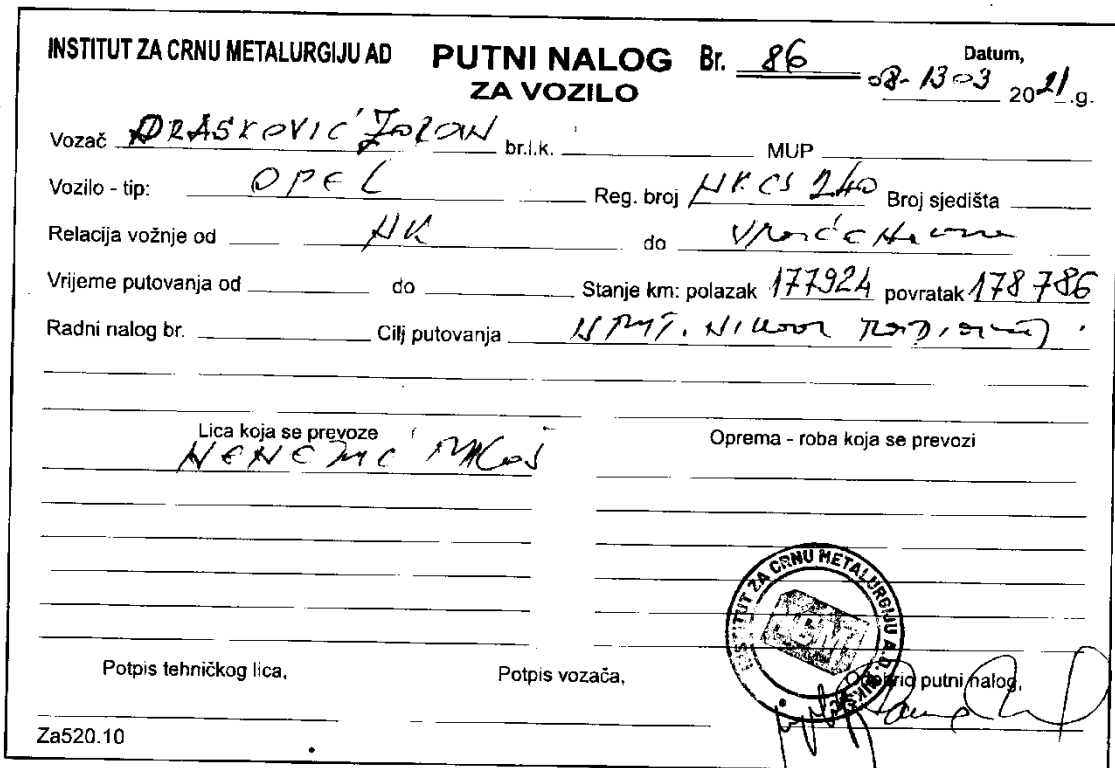 INSTITUT ZA CRNU METALURGIJU AD PUTNI NALOG Br. 86 Datum,
ZA VOZILO 08-13 03 2021.g.
Vozač DRAŠKOVIĆ ZORAN br.l.k. MUP
Vozilo - tip: OPEL Reg. broj NK CS 240 Broj sjedišta
Relacija vožnje od NK do
Vrijeme putovanja od do Stanje km: polazak 177924 povratak 178786
Radni nalog br. Cilj putovanja
Lica koja se prevoze Oprema - roba koja se prevozi
INSTITUT ZA CRNU METALURGIJU A.D. NIKŠIĆ
Potpis tehničkog lica, Potpis vozača, Odobrio putni nalog,
Za520.10